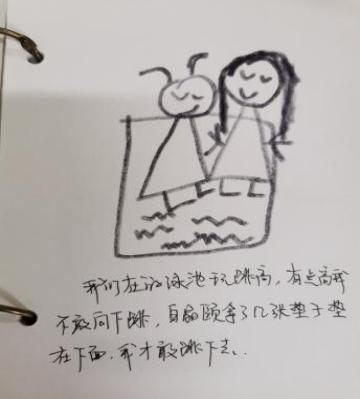 我们在游泳池玩跳高，有点高我
不敢向下跳，拿了几张垫子垫
在下面，我才敢跳下去。